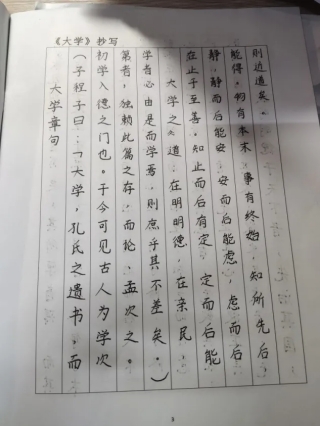 《大学》抄写
大学章句
(子程子曰:「大学,孔氏之遗书,而
初学入德之门也。于今可见古人为学次
第者,独赖此篇之存,而论、孟次之。
学者必由是而学焉,则庶乎其不差矣。)
大学之道,在明明德,在亲民,
在止于至善。知止而后有定,定而后能
静,静而后能安,安而后能虑,虑而后
能得。物有本末,事有终始,知所先后,
则近道矣。